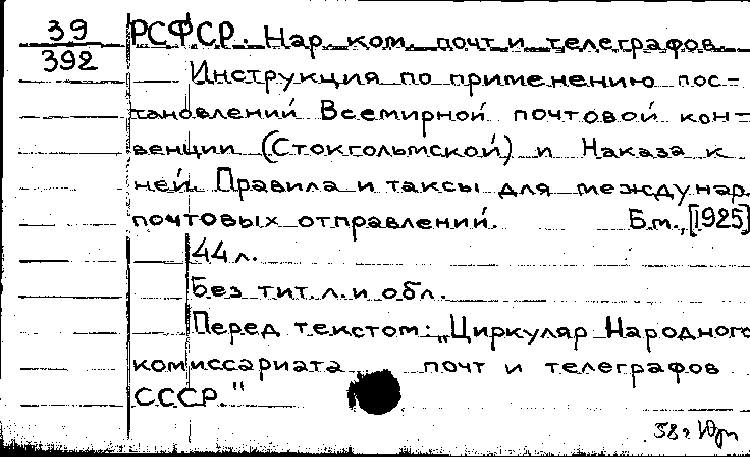 39
392
РСФСР. Нар. ком. почт и телеграфов.
Инструкция по применению пос-
тановлений Всемирной почтовой кон-
венции (Стокгольмской) и Наказа к
ней. Правила и таксы для междунар.
почтовых отправлений. Б.м., [1925]
44 л.
Без тит. л. и обл.
Перед текстом: „Циркуляр Народного
комиссариата почт и телеграфов
СССР."
58 г